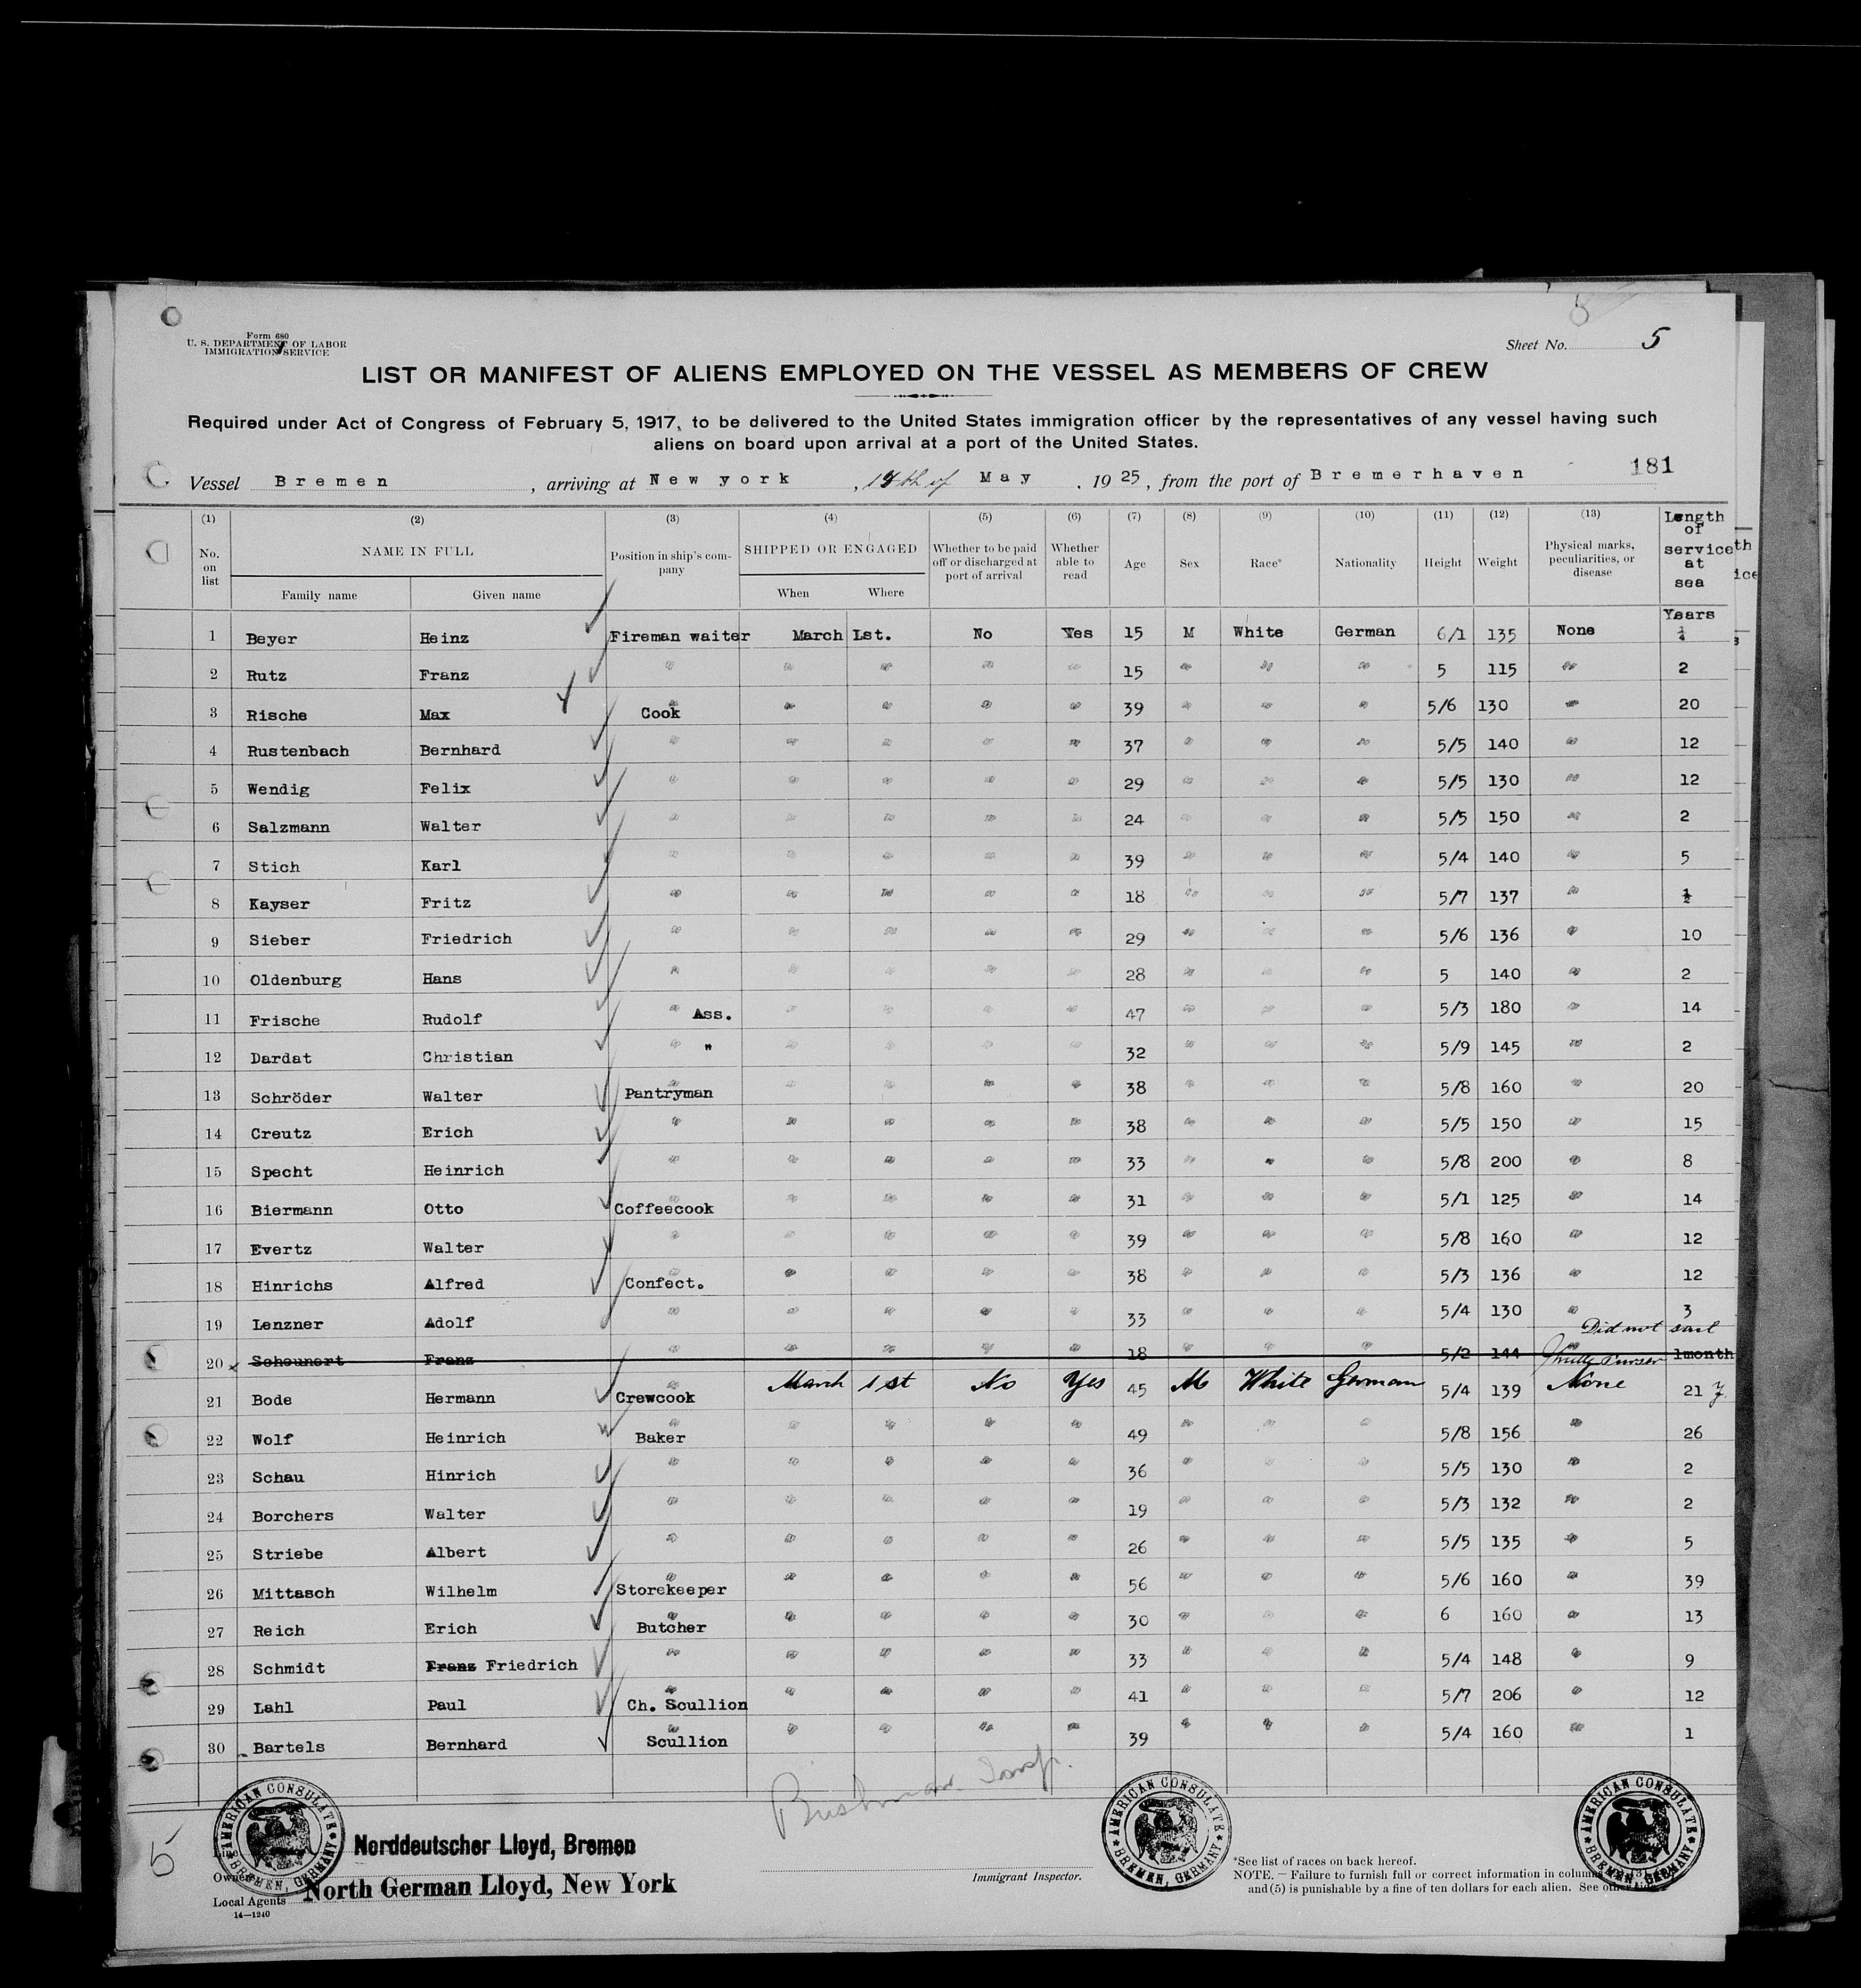 5
Form 680
U. S. DEPARTMENT OF LABOR
IMMIGRATION SERVICE
Sheet No. 5
LIST OR MANIFEST OF ALIENS EMPLOYED ON THE VESSEL AS MEMBERS OF CREW
Required under Act of Congress of February 5, 1917, to be delivered to the United States immigration officer by the representatives of any vessel having such
aliens on board upon arrival at a port of the United States.
181
Vessel Bremen, arriving at New york, th of May, 1925, from the port of Bremerhaven
(1) (2) (3) (4) (5) (6) (7) (8) (9) (10) (11) (12) (13) Length of service at sea
No. on list NAME IN FULL Position in ship's company SHIPPED OR ENGAGED Whether to be paid off or discharged at port of arrival Whether able to read Age Sex Race* Nationality Height Weight Physical marks, peculiarities, or disease
Family name Given name When Where
Years
1 Beyer Heinz Fireman waiter March 1st. No Yes 15 M White German 6/1 135 None
2 Rutz Franz " " " " " 15 " " " 5 115 " 2
3 Rische Max Cook " " " " 39 " " " 5/6 130 " 20
4 Rustenbach Bernhard " " " " " 37 " " " 5/5 140 " 12
5 Wendig Felix " " " " " 29 " " " 5/5 130 " 12
6 Salzmann Walter " " " " " 24 " " " 5/5 150 " 2
7 Stich Karl " " " " " 39 " " " 5/4 140 " 5
8 Kayser Fritz " " " " " 18 " " " 5/7 137 " ½
9 Sieber Friedrich " " " " " 29 " " " 5/6 136 " 10
10 Oldenburg Hans " " " " " 28 " " " 5 140 " 2
11 Frische Rudolf " Ass. " " " " 47 " " " 5/3 180 " 14
12 Dardat Christian " " " " " " 32 " " " 5/9 145 " 2
13 Schröder Walter Pantryman " " " " 38 " " " 5/8 160 " 20
14 Creutz Erich " " " " " 38 " " " 5/5 150 " 15
15 Specht Heinrich " " " " " 33 " " " 5/8 200 " 8
16 Biermann Otto Coffeecook " " " " 31 " " " 5/1 125 " 14
17 Evertz Walter " " " " " 39 " " " 5/8 160 " 12
18 Hinrichs Alfred Confect. " " " " 38 " " " 5/3 136 " 12
19 Lenzner Adolf " " " " " 33 " " " 5/4 130 " 3
Did not sail
20 x Scheunert Franz " " " " " 18 " " " 5/2 144 " 1month
Purser
21 Bode Hermann Crewcook March 1st No Yes 45 M White German 5/4 139 None 21 y.
22 Wolf Heinrich Baker " " " " 49 " " " 5/8 156 " 26
23 Schau Hinrich " " " " " 36 " " " 5/5 130 " 2
24 Borchers Walter " " " " " 19 " " " 5/3 132 " 2
25 Striebe Albert " " " " " 26 " " " 5/5 135 " 5
26 Mittasch Wilhelm Storekeeper " " " " 56 " " " 5/6 160 " 39
27 Reich Erich Butcher " " " " 30 " " " 6 160 " 13
28 Schmidt Franz Friedrich " " " " " 33 " " " 5/4 148 " 9
29 Lahl Paul Ch. Scullion " " " " 41 " " " 5/7 206 " 12
30 Bartels Bernhard Scullion " " " " 39 " " " 5/4 160 " 1
Insp.
AMERICAN CONSULATE BREMEN, GERMANY
AMERICAN CONSULATE BREMEN, GERMANY
AMERICAN CONSULATE BREMEN, GERMANY
5
Line Norddeutscher Lloyd, Bremen
Owners
Local Agents North German Lloyd, New York
14—1240
Immigrant Inspector.
*See list of races on back hereof.
NOTE. — Failure to furnish full or correct information in columns
and (5) is punishable by a fine of ten dollars for each alien. See other